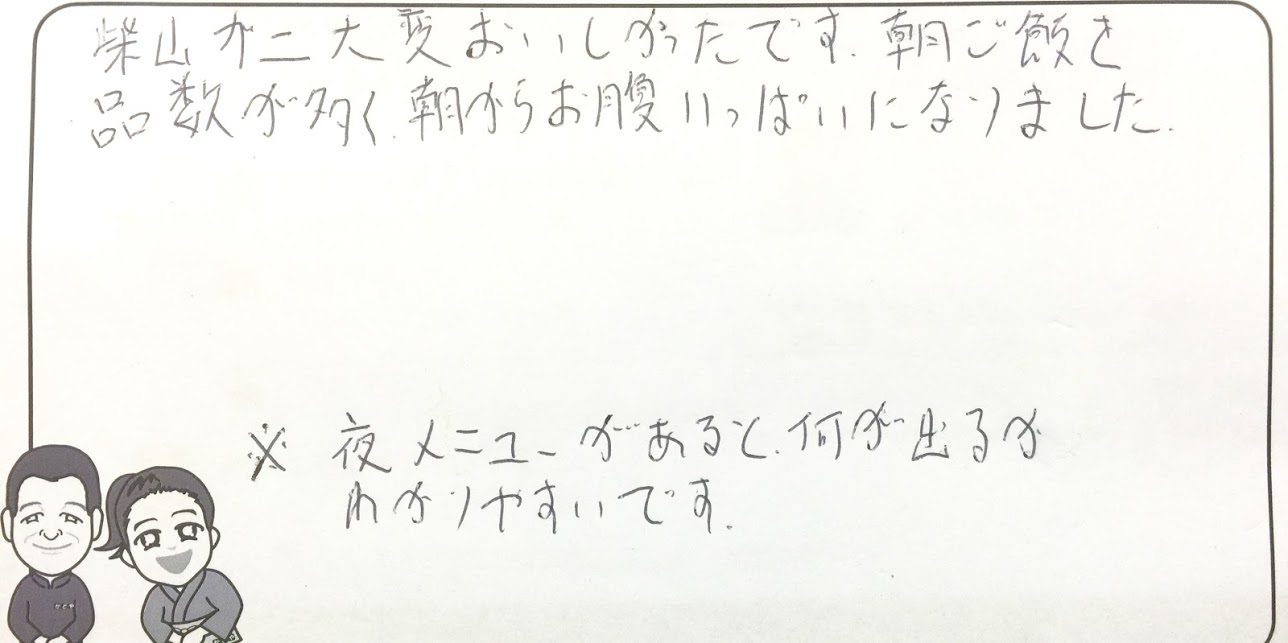 柴山ガニ大変おいしかったです。朝ご飯も
品数が多く、朝からお腹いっぱいになりました。
※ 夜メニューがあると、何が出るか
わかりやすいです。